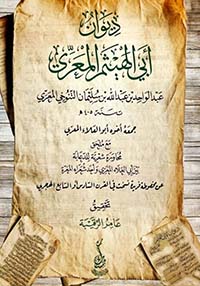 ديوان
أبي الهيثم المعري
عبد الواحد بن عبد الله بن سليمان التنوخي المعري
ت سنة ٤٠٥ هـ
جمعه أخوه أبو العلاء المعري
مع ملحق
محاورة شعرية للدعابة
بين أبي العلاء المعري وأحد شعراء المعرة
عن مخطوطة فريدة نسخت في القرن السادس أو السابع الهجري
تحقيق